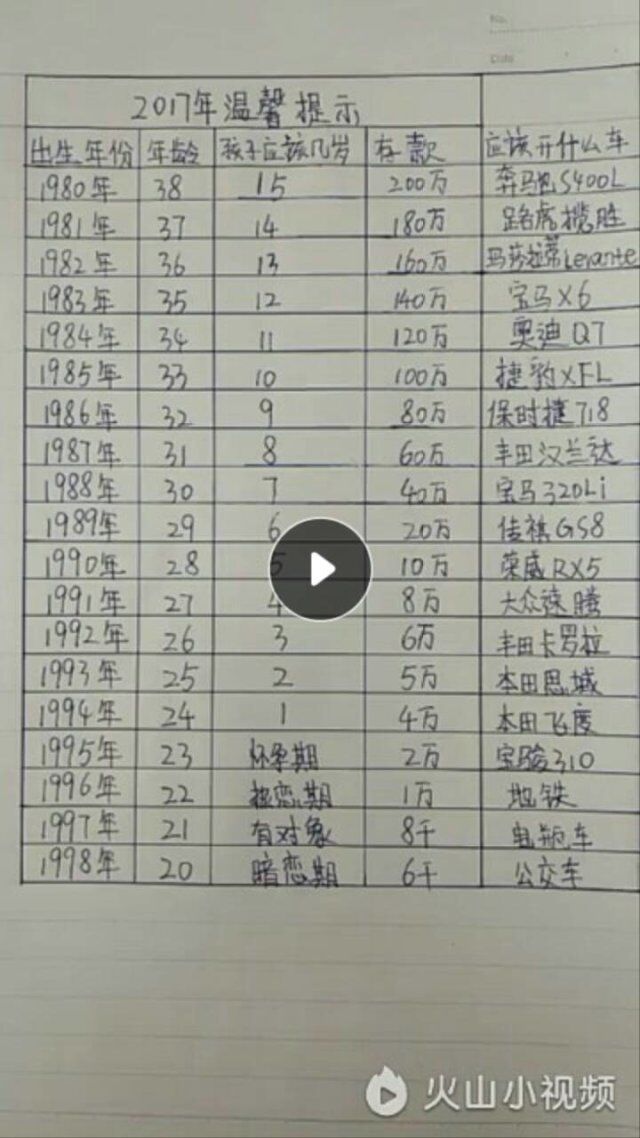 NO.
DATE
2017年温馨提示
出生年份 年龄 孩子应该几岁 存款 应该开什么车
1980年 38 15 200万 奔驰S400L
1981年 37 14 180万 路虎揽胜
1982年 36 13 160万 玛莎拉蒂Levante
1983年 35 12 140万 宝马X6
1984年 34 11 120万 奥迪Q7
1985年 33 10 100万 捷豹XFL
1986年 32 9 80万 保时捷718
1987年 31 8 60万 丰田汉兰达
1988年 30 7 40万 宝马320Li
1989年 29 6 20万 传祺GS8
1990年 28 5 10万 荣威RX5
1991年 27 4 8万 大众速腾
1992年 26 3 6万 丰田卡罗拉
1993年 25 2 5万 本田思域
1994年 24 1 4万 本田飞度
1995年 23 怀孕期 2万 宝骏310
1996年 22 热恋期 1万 地铁
1997年 21 有对象 8千 电瓶车
1998年 20 暗恋期 6千 公交车
火山小视频